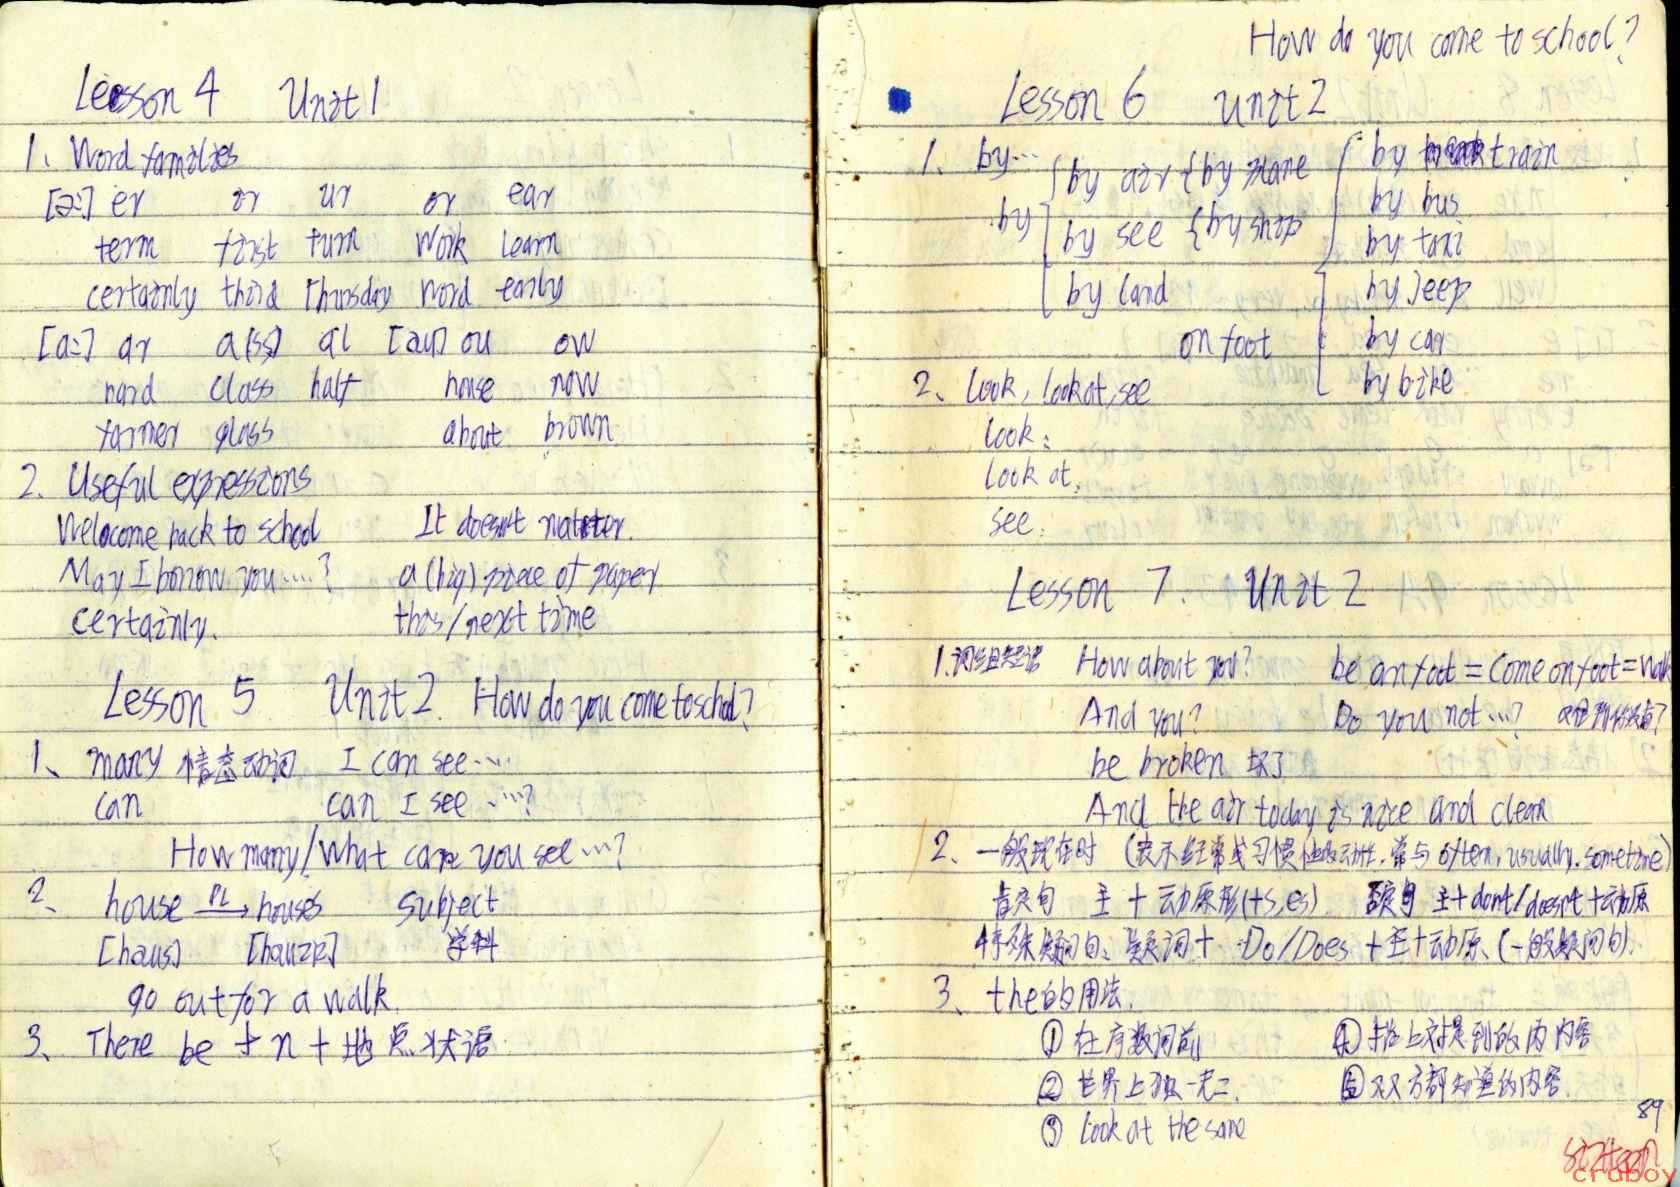 Lesson 4 Unit 1
1、Word families
[ə:] er or ur or ear
term first turn work learn
certainly third Thursday word early
[a:] ar a(ss) al [au] ou ow
hard class half house now
farmer glass about brown
2. Useful expressions
Welcome back to school It doesn't matter.
May I borrow you ....? a (big) piece of paper
certainly. this/next time
Lesson 5 Unit 2. How do you come to school?
1、many 情态动词 I can see .....
can can I see .....?
How many/What can you see ...?
2、house PL→ houses subject
[haus] 学科
go out for a walk.
3、There be + n + 地点状语
How do you come to school?
Lesson 6 Unit 2
1、by...
by
by air {by plane
by see {by ship
by land
on foot
by train
by bus
by taxi
by Jeep
by car
by bike
2、look, look at, see
look:
look at:
see:
Lesson 7. Unit 2
1.词组短语 How about you? be on foot = come on foot = walk
And you? Do you not ...?
be broken 坏了
And the air today is nice and clean
2、一般现在时 (表示经常或习惯性的动作.常与 often, usually. sometime)
肯定句 主 + 动原形(+s,es). 否定句 主+don't/doesn't+动原
特殊疑问句、疑问词 + Do/Does + 主+动原、(一般疑问句).
3、the的用法.
① 在序数词前 ④ 指上文提到的内容
② 世界上独一无二. ⑤ 双方都知道的内容.
③ Look at the same
89
sixteen
craboy